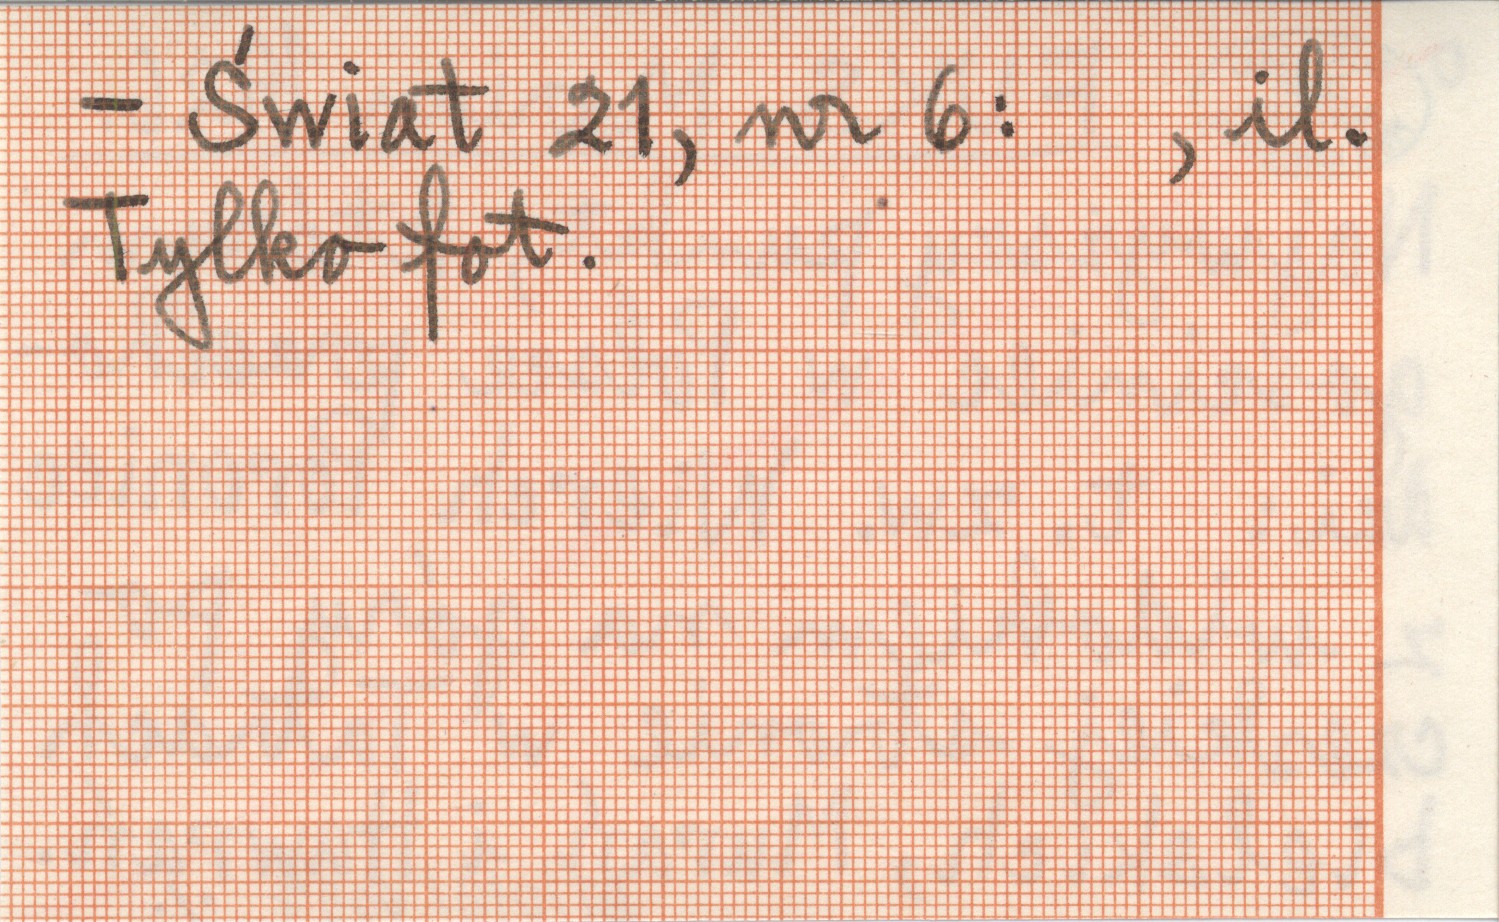 - Świat 21, nr 6: , il.
Tylko fot.